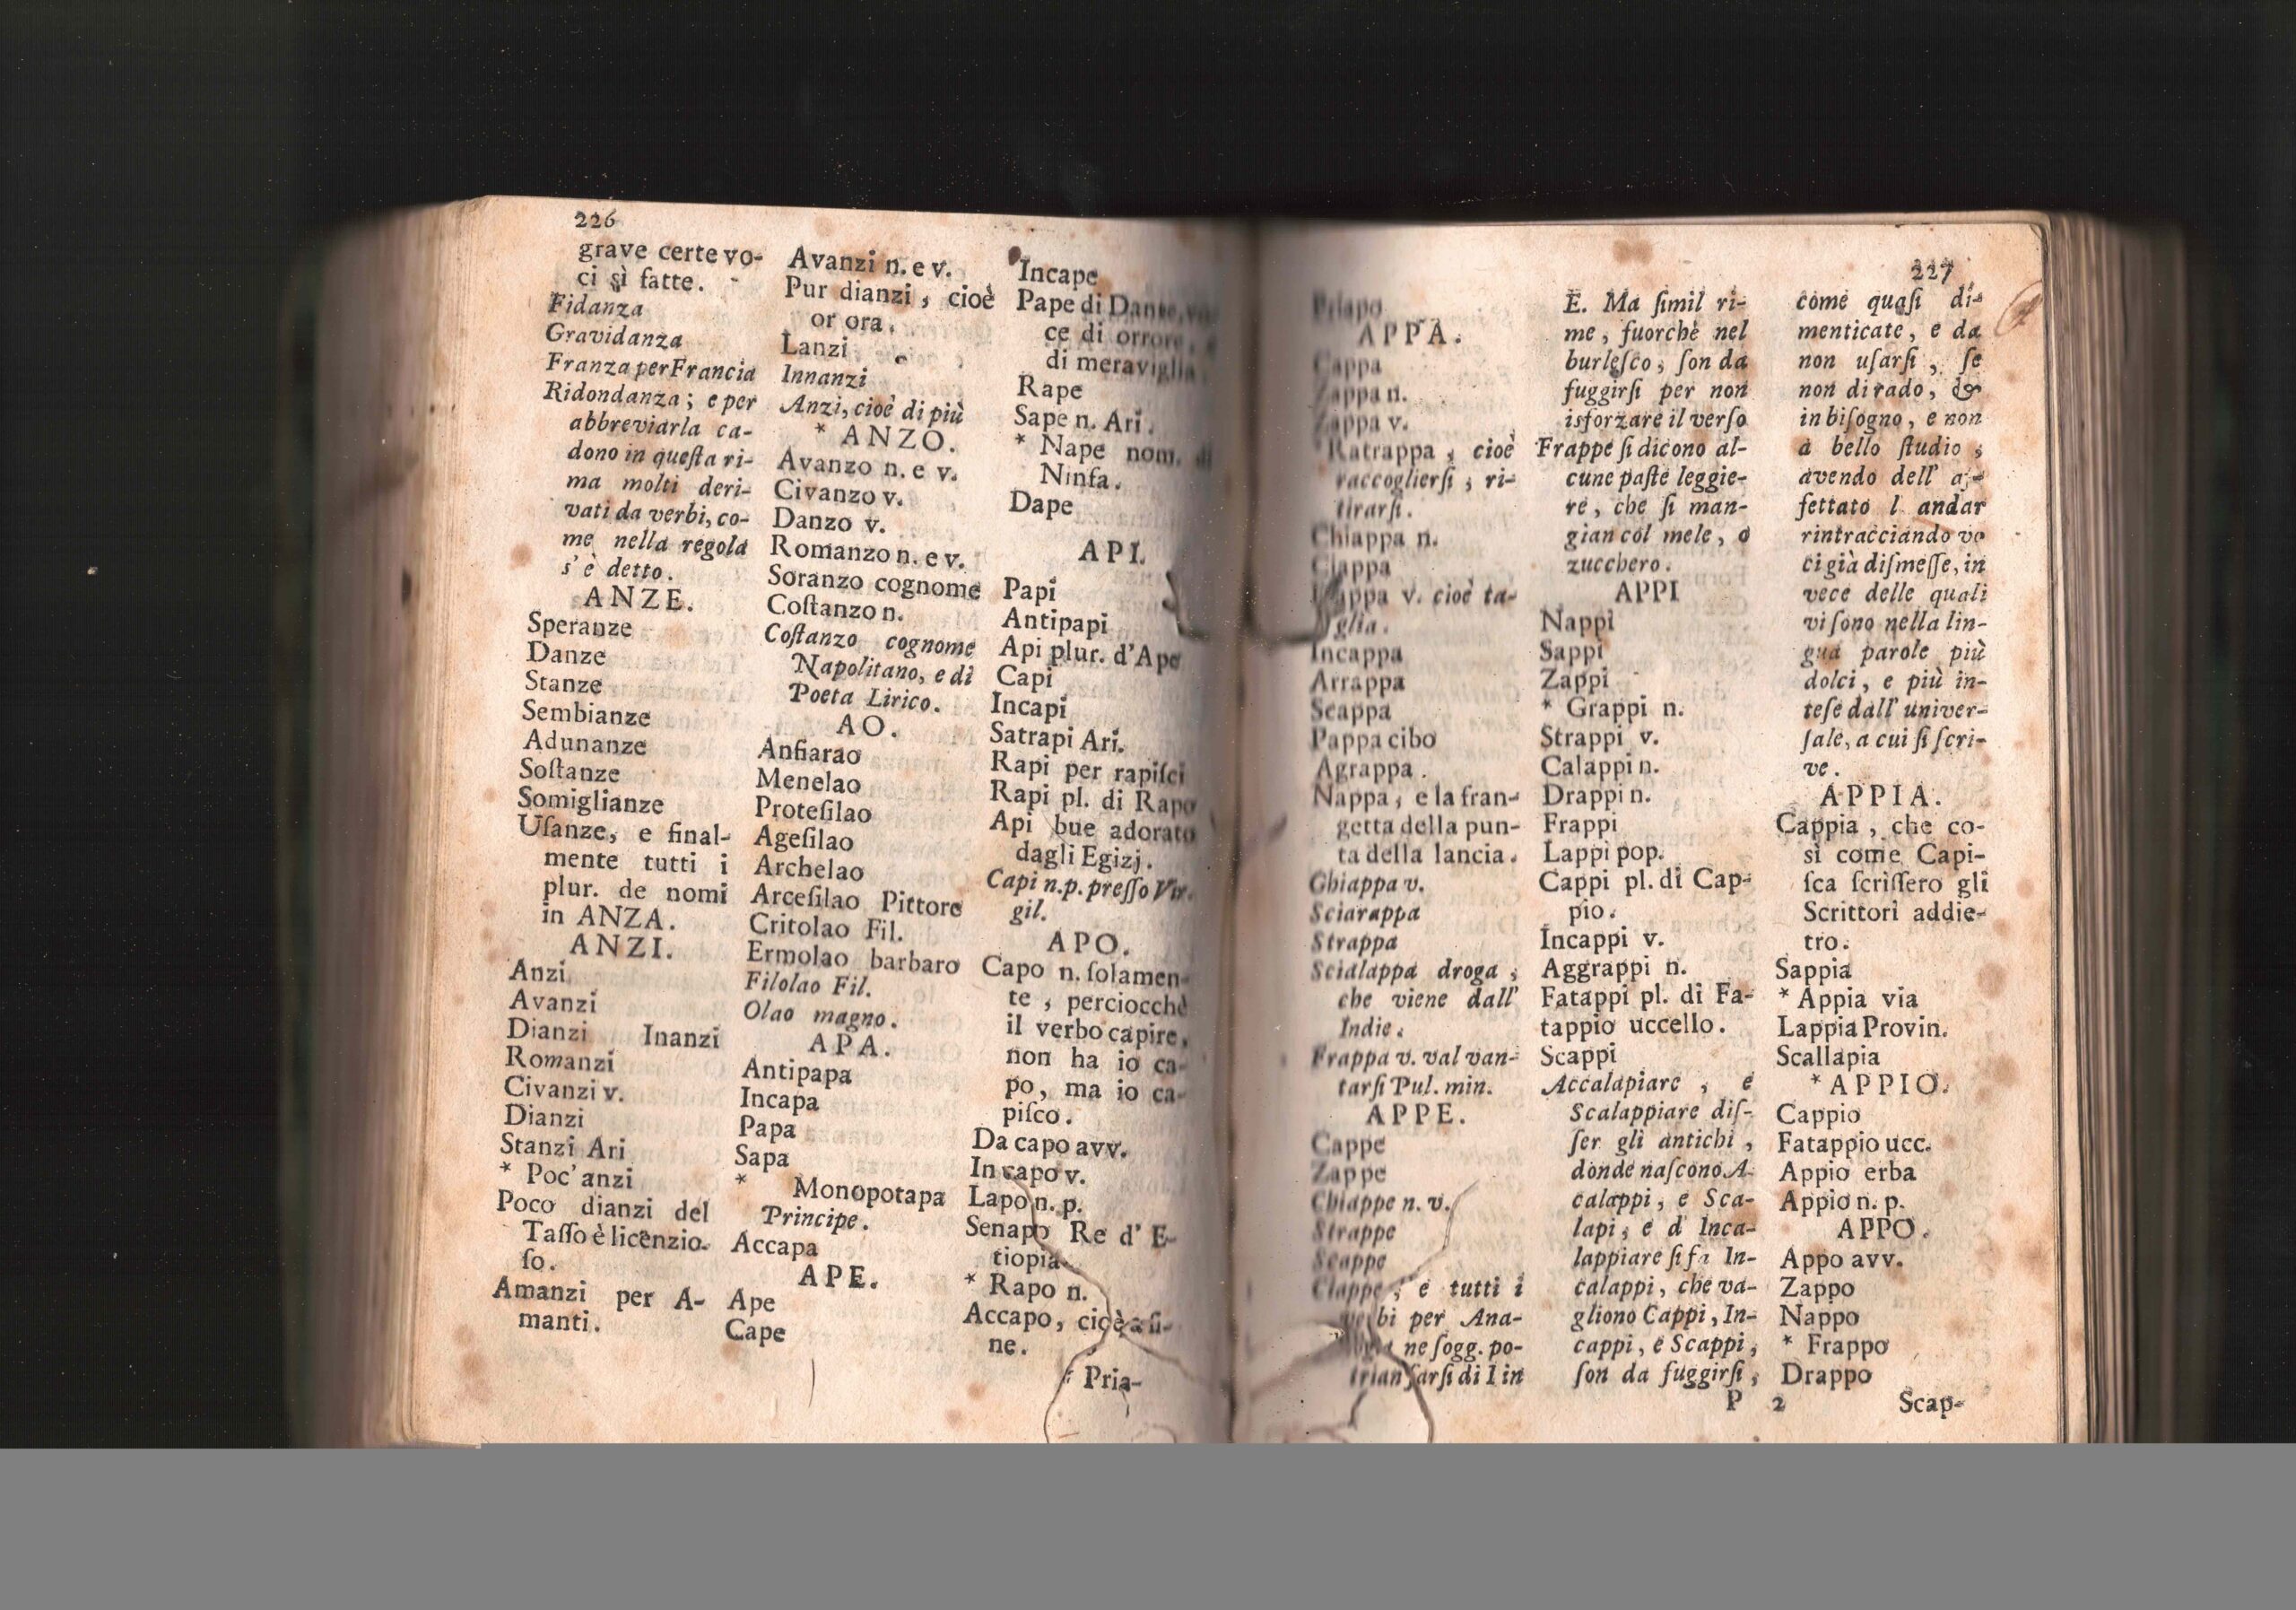 226
grave certe vo-
ci sì fatte.
Fidanza
Gravidanza
Franza per Francia
Ridondanza; e per
abbreviarla ca-
dono in queſta ri-
ma molti deri-
vati da verbi, co-
me nella regola
s'è detto.
ANZE.
Speranze
Danze
Stanze
Sembianze
Adunanze
Soſtanze
Somiglianze
Uſanze, e final-
mente tutti i
plur. de nomi
in ANZA.
ANZI.
Anzi
Avanzi
Dianzi Inanzi
Romanzi
Civanzi v.
Dianzi
Stanzi Ari
* Poc'anzi
Poco dianzi del
Taſſo è licenzio-
ſo.
Amanzi per A-
manti.
Avanzi n. e v.
Pur dianzi, cioè
or ora.
Lanzi
Innanzi
Anzi, cioè di più
* ANZO.
Avanzo n. e v.
Civanzo v.
Danzo v.
Romanzo n. e v.
Soranzo cognome
Coſtanzo n.
Coſtanzo cognome
Napolitano, e di
Poeta Lirico.
AO.
Anfiarao
Menelao
Proteſilao
Ageſilao
Archelao
Arceſilao Pittore
Critolao Fil.
Ermolao barbaro
Filolao Fil.
Olao magno.
APA.
Antipapa
Incapa
Papa
Sapa
* Monopotapa
Principe.
Accapa
APE.
Ape
Cape
Incape
Pape di Dante, vo-
ce di orrore,
di meraviglia
Rape
Sape n. Ari.
* Nape nom. di
Ninfa.
Dape
API.
Papi
Antipapi
Api plur. d'Ape
Capi
Incapi
Satrapi Ari.
Rapi per rapiſci
Rapi pl. di Rapo
Api bue adorato
dagli Egizj.
Capi n. p. preſſo Vir-
gil.
APO.
Capo n. ſolamen-
te, perciocchè
il verbo capire,
non ha io ca-
po, ma io ca-
piſco.
Da capo avv.
Incapo v.
Lapo n. p.
Senapo Re d' E-
tiopia.
* Rapo n.
Accapo, cioè a fi-
ne.
Pria-
227
Priapo
APPA.
Cappa
Zappa n.
Zappa v.
Ratrappa, cioè
raccoglierſi, ri-
tirarſi.
Chiappa n.
Clappa
v. cioè ta-
glia.
Incappa
Arrappa
Scappa
Pappa cibo
Agrappa.
Nappa, e la fran-
getta della pun-
ta della lancia.
Chiappa v.
Sciarappa
Strappa
Scialappa droga,
che viene dall'
Indie.
Frappa v. val van-
tarſi Pul. min.
APPE.
Cappe
Zappe
Chiappe n. v.
Strappe
Scappe
Clappe, e tutti i
verbi per Ana-
ne ſogg. po-
trian farſi di I in
E. Ma ſimil ri-
me, fuorchè nel
burleſco, ſon da
fuggirſi per non
isforzare il verſo
Frappe ſi dicono al-
cune paſte leggie-
re, che ſi man-
gian col mele, o
zucchero.
APPI
Nappi
Sappi
Zappi
* Grappi n.
Strappi v.
Calappi n.
Drappi n.
Frappi
Lappi pop.
Cappi pl. di Cap-
pio.
Incappi v.
Aggrappi n.
Fatappi pl. di Fa-
tappio uccello.
Scappi
Accalapiare, e
Scalappiare diſ-
ſer gli antichi,
donde naſcono A-
calappi, e Sca-
lapi, e d' Inca-
lappiare ſi fa In-
calappi, che va-
gliono Cappi, In-
cappi, e Scappi,
ſon da fuggirſi,
come quaſi di-
menticate, e da
non uſarſi, ſe
non di rado, &
in biſogno, e non
a bello ſtudio,
avendo dell' af-
fettato l andar
rintracciando vo
ci già diſmeſſe, in
vece delle quali
vi ſono nella lin-
gua parole più
dolci, e più in-
teſe dall' univer-
ſale, a cui ſi ſcri-
ve.
APPIA.
Cappia, che co-
sì come Capi-
ſca ſcriſſero gli
Scrittori addie-
tro.
Sappia
* Appia via
Lappia Provin.
Scallapia
* APPIO.
Cappio
Fatappio ucc.
Appio erba
Appio n. p.
APPO.
Appo avv.
Zappo
Nappo
* Frappo
Drappo
P 2
Scap-